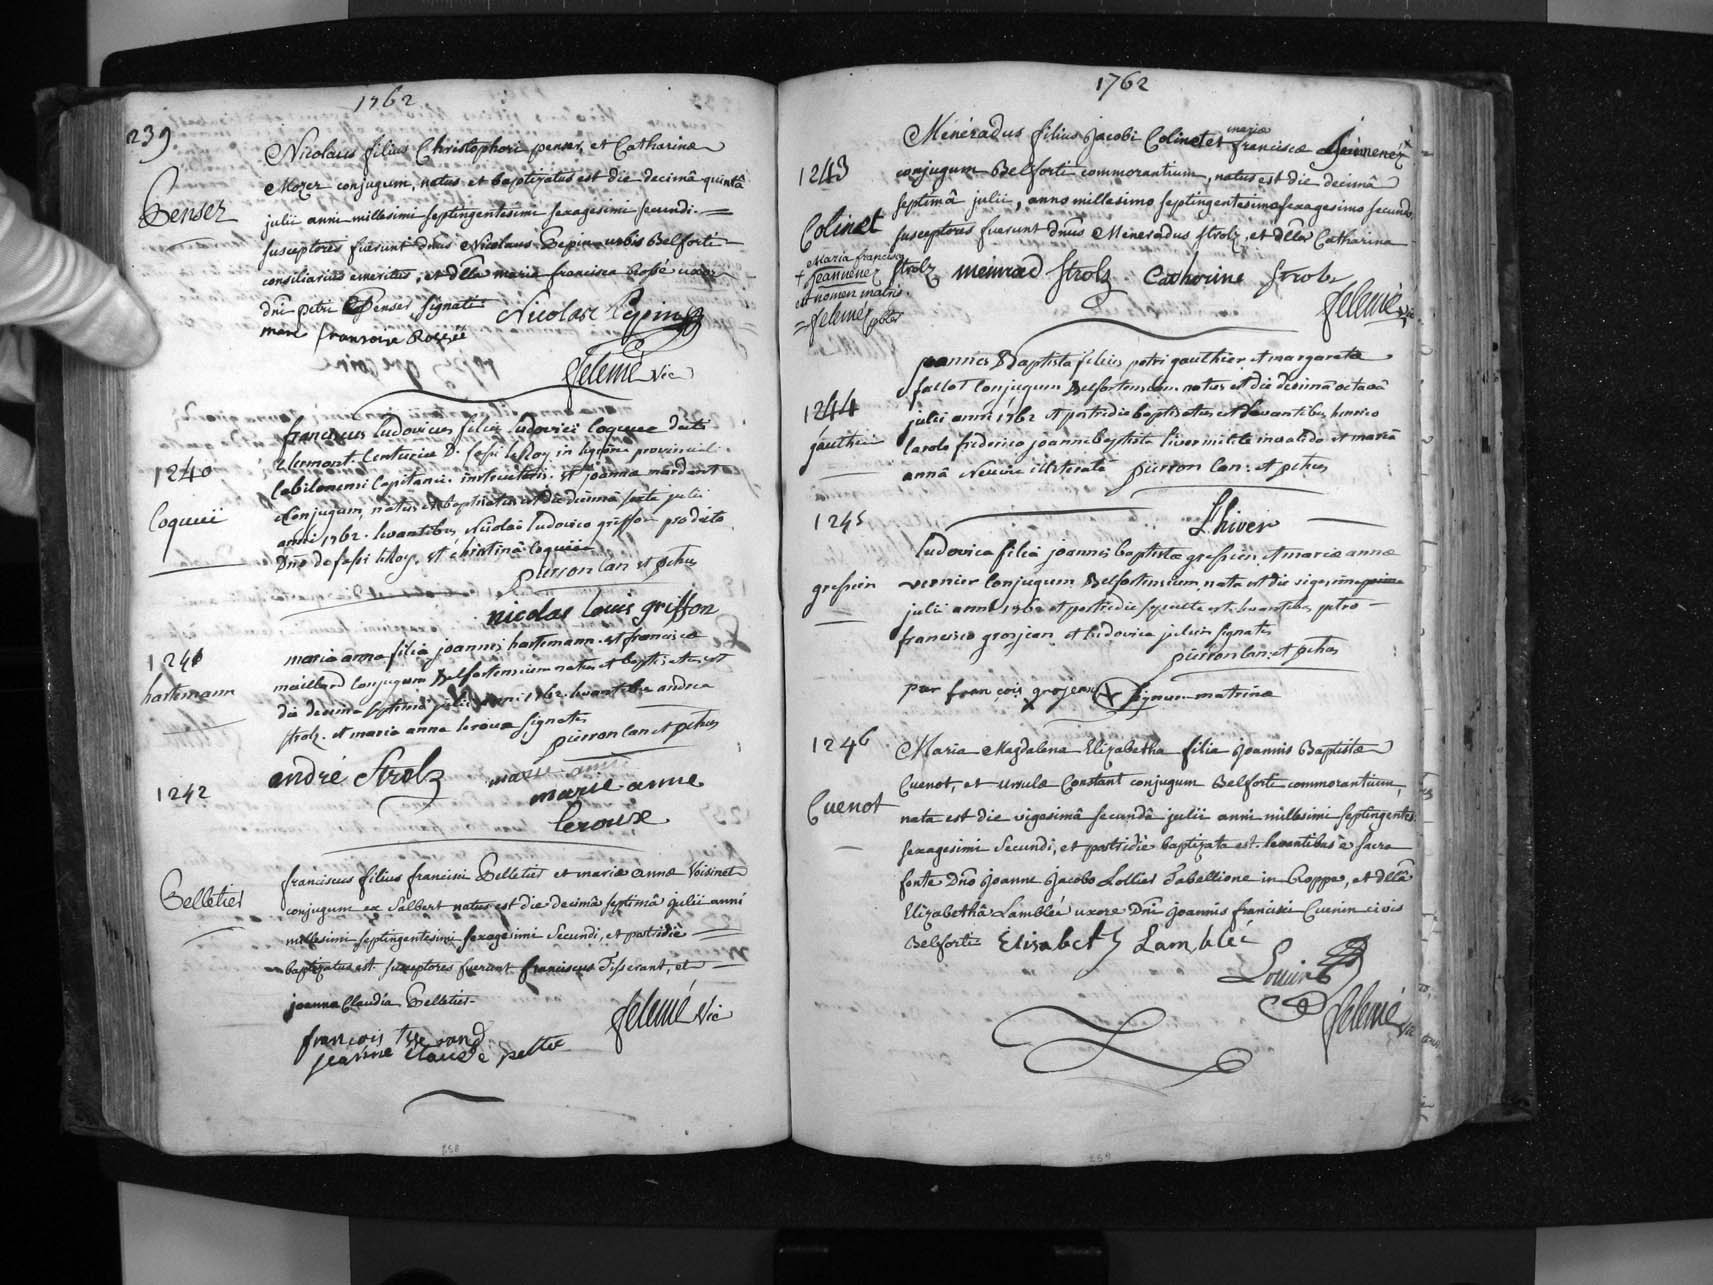 1762
239.
Nicolaus filius Christophori penser, et Catharinæ
Mozer conjugum, natus et baptizatus est die decimâ quintâ
Benser
julii anni millesimi septingentesimi sexagesimi secundi.
susceptores fuerunt dnus Nicolaus Pepin urbis Belforti
consiliarius emeritus, et dlla maria francisca Rossé uxor
dni petri Penser signati
Nicolas Pepin
mari fransoise Rossée
felemé Vic
franciscus ludovicus filius ludovici Coqueee dicti
Clermont Centuriæ D. fessi leRoy in legione provinciali
1240
Cabilonensi Capitanei instructoris et joannæ mardant
Conjugum, natus et baptisatus est die decima sexta julii
Coqueii
anni 1762. levantibus Nicolao ludovico griffon prædicto
Dno de fessi leRoy. et christinâ Coqueii
pierron Can et pchus
nicolas louis griffon
1241
maria anna filia joannis hartemann et franciscæ
hartemann
maillard Conjugum Belfortensium natus et baptisatus est
die decima septima julii anni 1762. levantibus andrea
strolz. et maria anna leroux signatis
pierron Can et pchus
andré Strolz
marie anne
1242
marie anne
leroux
franciscus filius francisci Belletier et mariæ annæ Voisinet
Belletier
conjugum ex Salbert natus est die decimâ septimâ julii anni
millesimi septingentesimi sexagesimi secundi, et postridie
baptizatus est. susceptores fuerunt franciscus Tisserant, et
joanna Claudia Belletier.
felemé Vic
françois
jeanne claude
258
1762
Méneradus filius jacobi Colinet et mariæ franciscæ
1243
conjugum Belforti commorantium, natus est die decimâ
septimâ julii, anno millesimo septingentesimo sexagesimo secundo,
Colinet
susceptores fuerunt dnus Méneradus strolz, et dlla Catharina
strolz meinrad strolz. Catharine strolz
+ Maria francisca
jeannenez
est nomen matris.
felemé
felemé
joannes Baptista filius petri gauthier et margaretæ
fallot Conjugum Belfortensium natus est die decimâ octavâ
1244
julii anni 1762 et postridie baptisatus est levantibus henrico
gauthier
Carolo frederico joanne baptista liver milite invalido et mariâ
annâ illiterata pierron Can: et pchus
L'hiver
1245
ludovica filia joannis baptistæ gressien et mariæ annæ
gressien
vernier Conjugum Belfortensium nata est die vigesima prima
julii anni 1762 et postridie levantibus petro
francisco grosjean et ludovica signatis
pierron Can: et pchus
pier françois grojean X signum matrinæ
1246
Maria Magdalena Elizabetha filia joannis Baptistæ
Cuenot, et ursulæ Constant conjugum Belforti commorantium,
Cuenot
nata est die vigesimâ secundâ julii anni millesimi septingentes.
sexagesimi secundi, et postridie baptizata est. levantibus è sacro
fonte Dno joanne jacobo Lollier Tabellione in Roppe, et dllâ
Elizabethâ Lamblée uxore Dni joannis francisci Cuenin civis
Belforti Elisabeth Lamblée
felemé
259